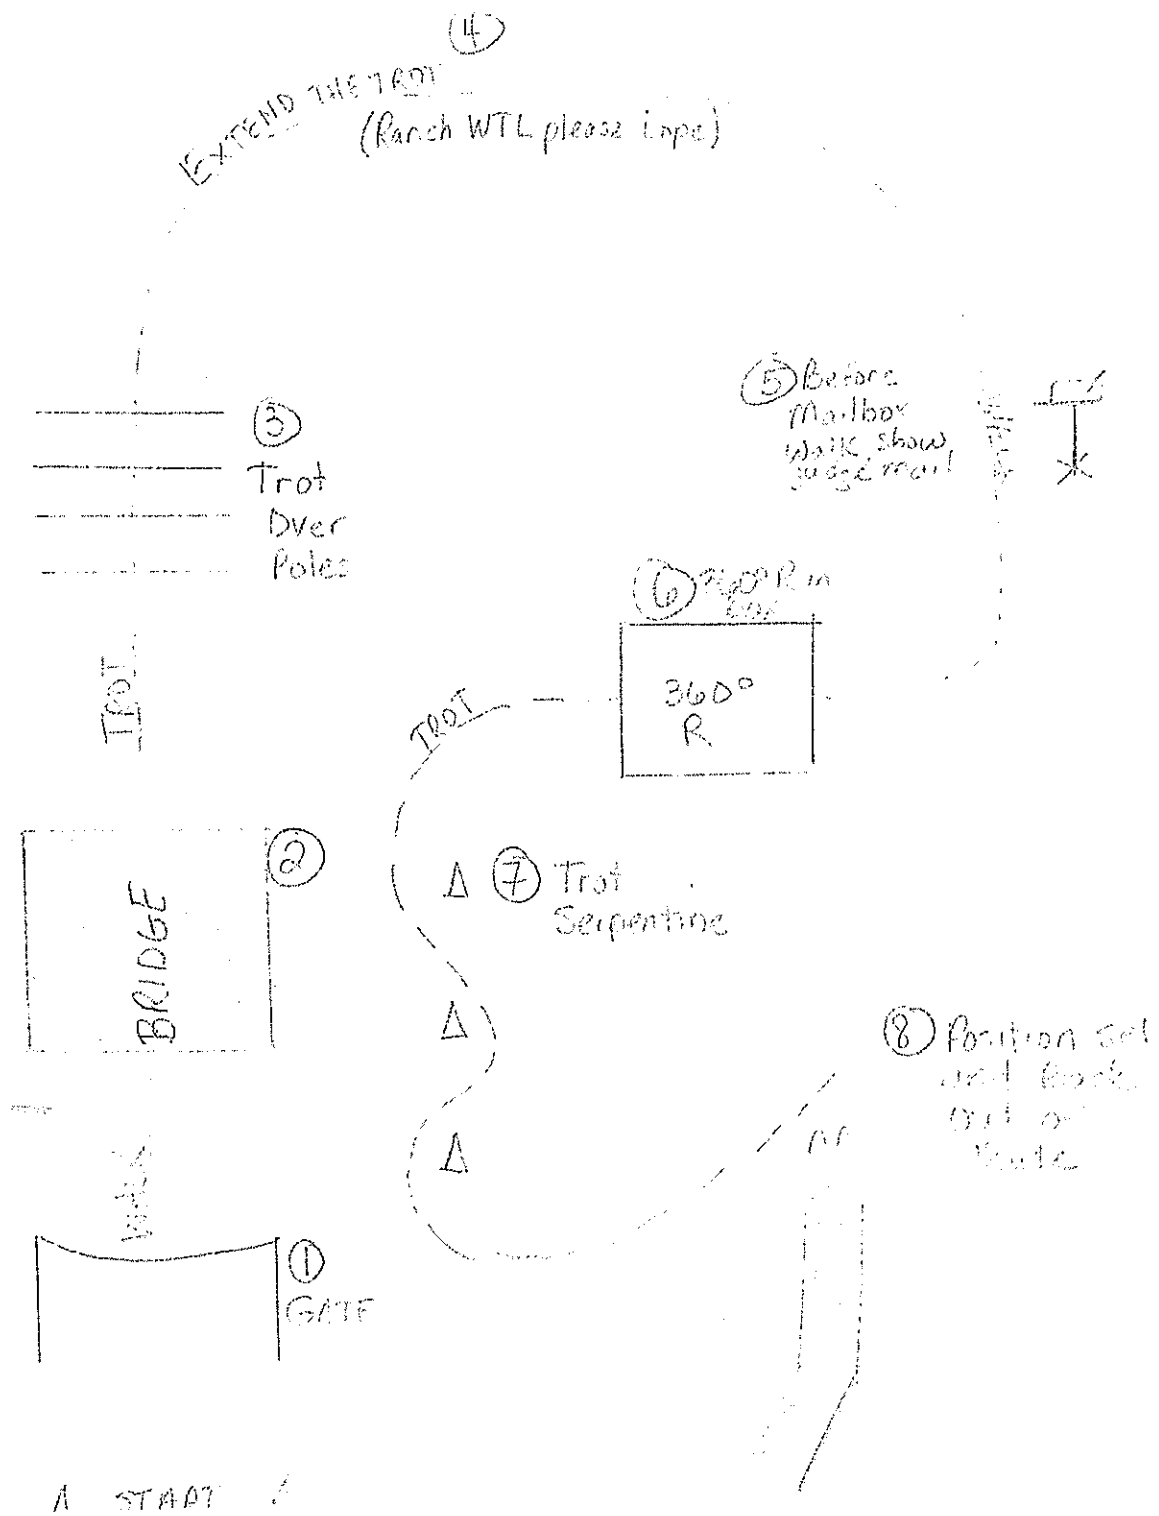 4
EXTEND THE TROT
(Ranch WTL please lope)
5 Before
Mailbox
Walk, show
judge mail
WALK
3
Trot
Over
Poles
6 360° R in
box
360°
R
TROT
TROT
2
BRIDGE
7 Trot
Serpentine
8 Position self
and Back
out of
Chute
WALK
1
GATE
START